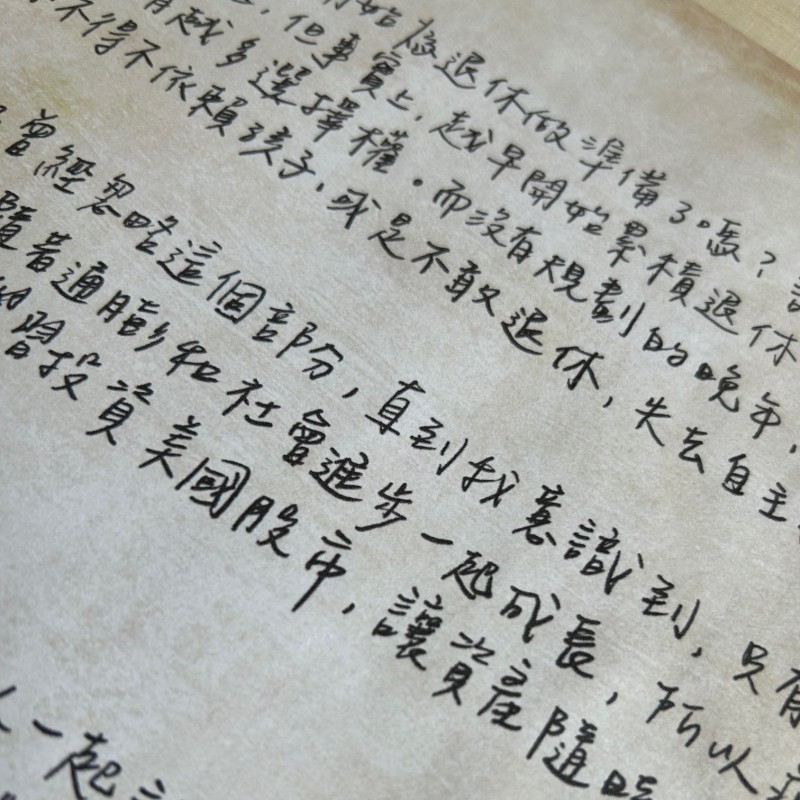 開始為退休做準備了嗎？
，但事實上，越早開始累積退休
有越多選擇權。而沒有規劃的晚年，
不得不依賴孩子，或是不敢退休，失去自主
曾經忽略這個部份，直到我意識到，只有
隨著通膨和社會進步一起成長，所以我
投資美國股市，讓資產隨時
人一起